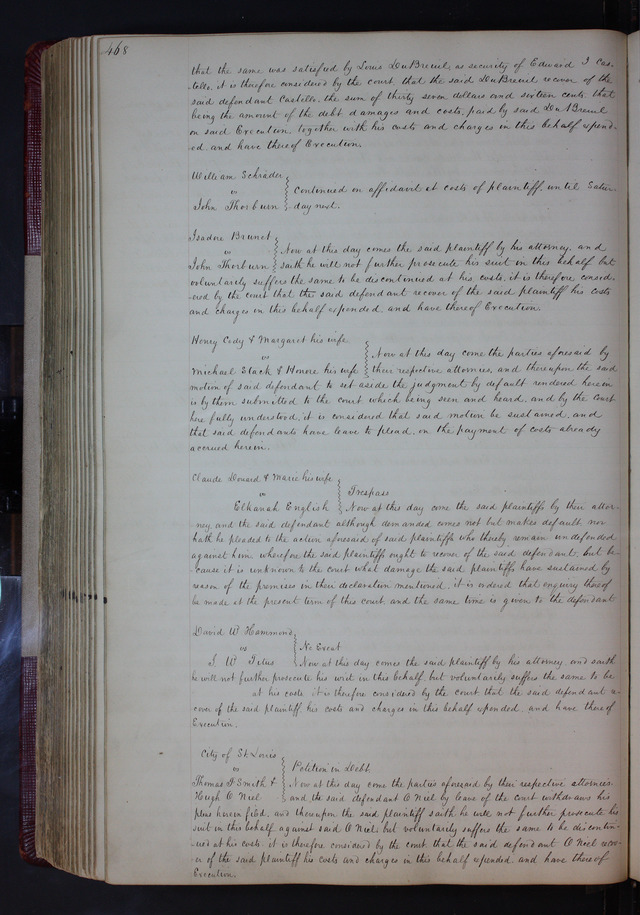 468
that the same was satisfied by Louis DuBreuil as security of Edward J Cas-
-tello, it is therefore considered by the court that the said DuBreuil recover of the
said defendant Castello, the sum of thirty seven dollars and sixteen cents that
being the amount of the debt, damages and costs, paid by said DuBreuil
on said Execution, together with his costs and charges in this behalf expend-
ed and have thereof Execution.
William Schrader
vs
John Thorburn
Continued on affidavit at costs of plaintiff until Satur-
day next.
Isadore Brunet
vs
John Thorburn
Now at this day comes the said plaintiff by his attorney, and
saith he will not further prosecute his suit in this behalf but
voluntarily suffers the same to be discontinued at his costs, it is therefore consid-
ered by the court that the said defendant recover of the said plaintiff his costs
and charges in this behalf expended, and have thereof Execution.
Henry Cody & Margaret his wife
vs
Michael Slack & Honore his wife
Now at this day come the parties aforesaid by
their respective attornies, and thereupon the said
motion of said defendant to set aside the judgment by default rendered herein
is by them submitted to the court which being seen and heard, and by the court
here fully understood, it is considered that said motion be sustained, and
that said defendants have leave to plead, on the payment of costs already
accrued herein.
Claude Douard & Marie his wife
vs
Elkanah English
Trespass
Now at this day come the said plaintiffs by their attor-
ney, and the said defendant although demanded comes not but makes default, nor
hath he pleaded to the action aforesaid of said plaintiffs who thereby remain undefended
against him wherefore, the said plaintiffs ought to recover of the said defendant, but be-
cause it is unknown to the court what damage the said plaintiffs have sustained by
reason of the premises in their declaration mentioned, it is ordered that enquiry thereof
be made at the present term of this court, and the same time is given to the defendant
David W Hammond
vs
J. W Titus
Ne Exeat
Now at this day comes the said plaintiff by his attorney, and saith
he will not further prosecute his writ in this behalf, but voluntarily suffers the same to be
at his costs it is therefore considered by the court that the said defendant
cover of the said plaintiff his costs and charges in this behalf expended, and have thereof
Execution.
City of St. Louis
vs
Thomas F Smith &
Hugh O Neil
Petition in Debt
Now at this day come the parties aforesaid by their respective attornies
and the said defendant O Neil by leave of the court withdraws his
pleas herein filed, and thereupon the said plaintiff saith he will not further prosecute his
suit in this behalf, against said O Neil, but voluntarily suffers the same to be discontin-
-ued at his costs, it is therefore considered by the court that the said defendant O Neil recov-
er of the said plaintiff his costs and charges in this behalf expended, and have thereof
Execution.